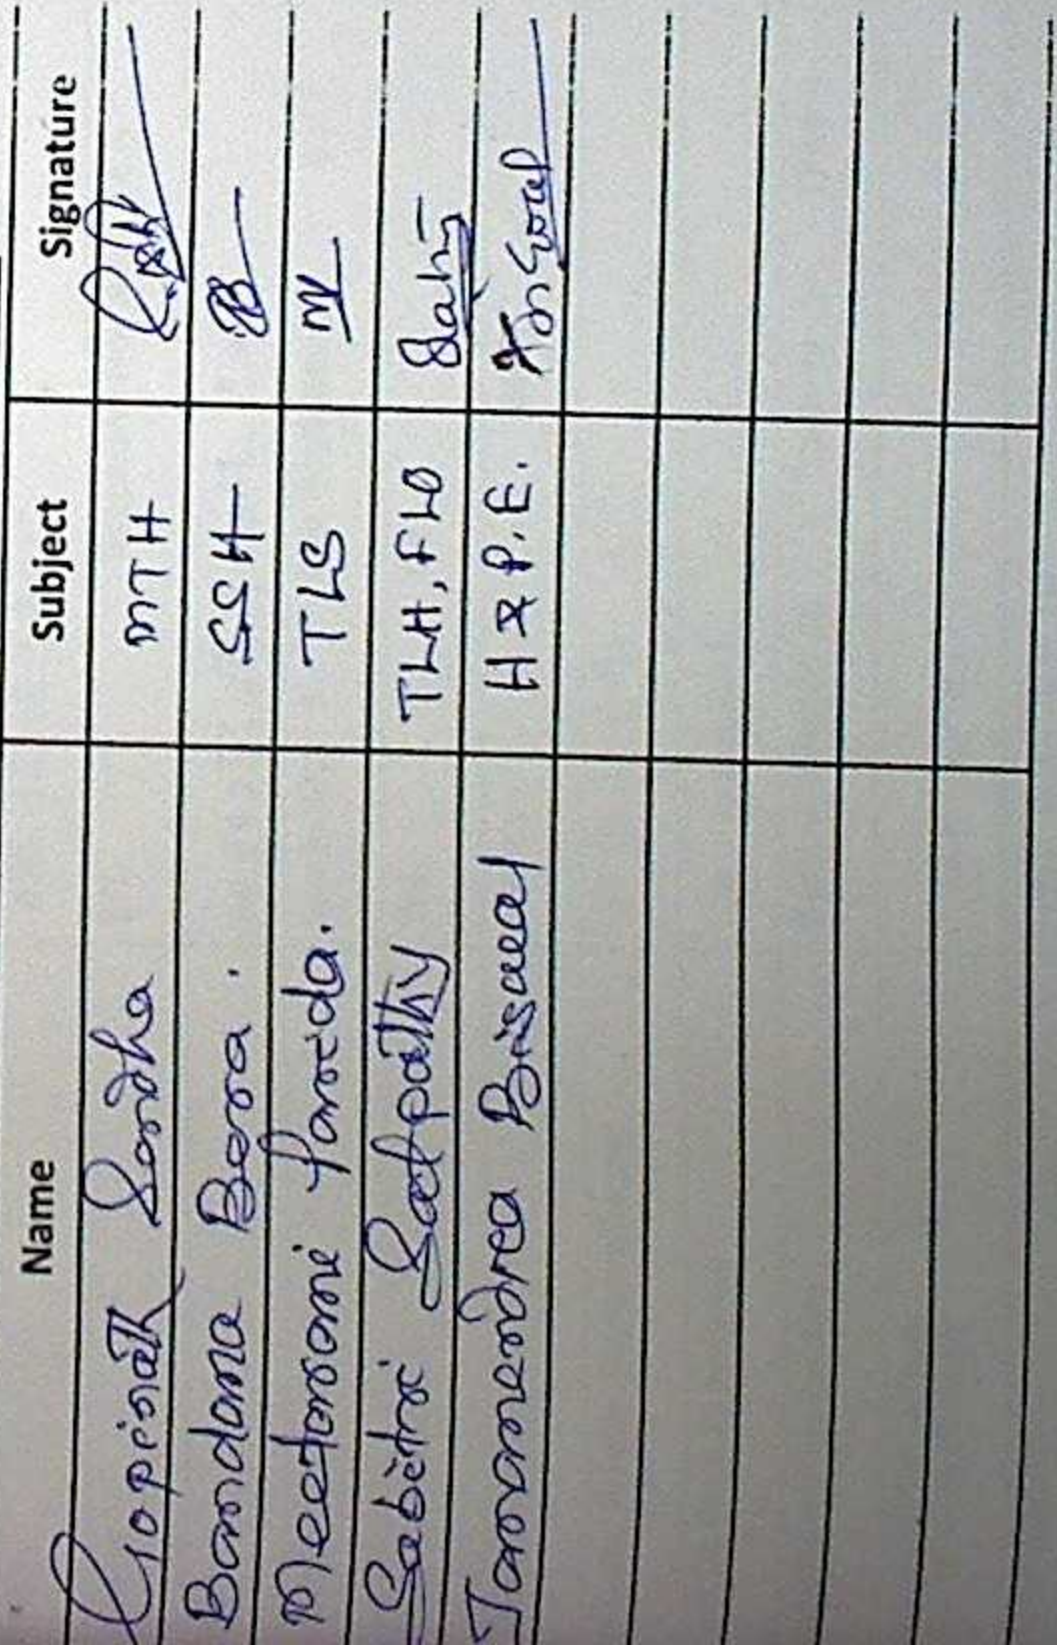 Name Subject Signature
Gopinath Sandha MTH
Bandana Bera. SSH B
Meetarani Parida. TLS M
Sabitri Satpathy TLH, FLO Satpathy
Jannmendra Biswal H & P.E. Biswal